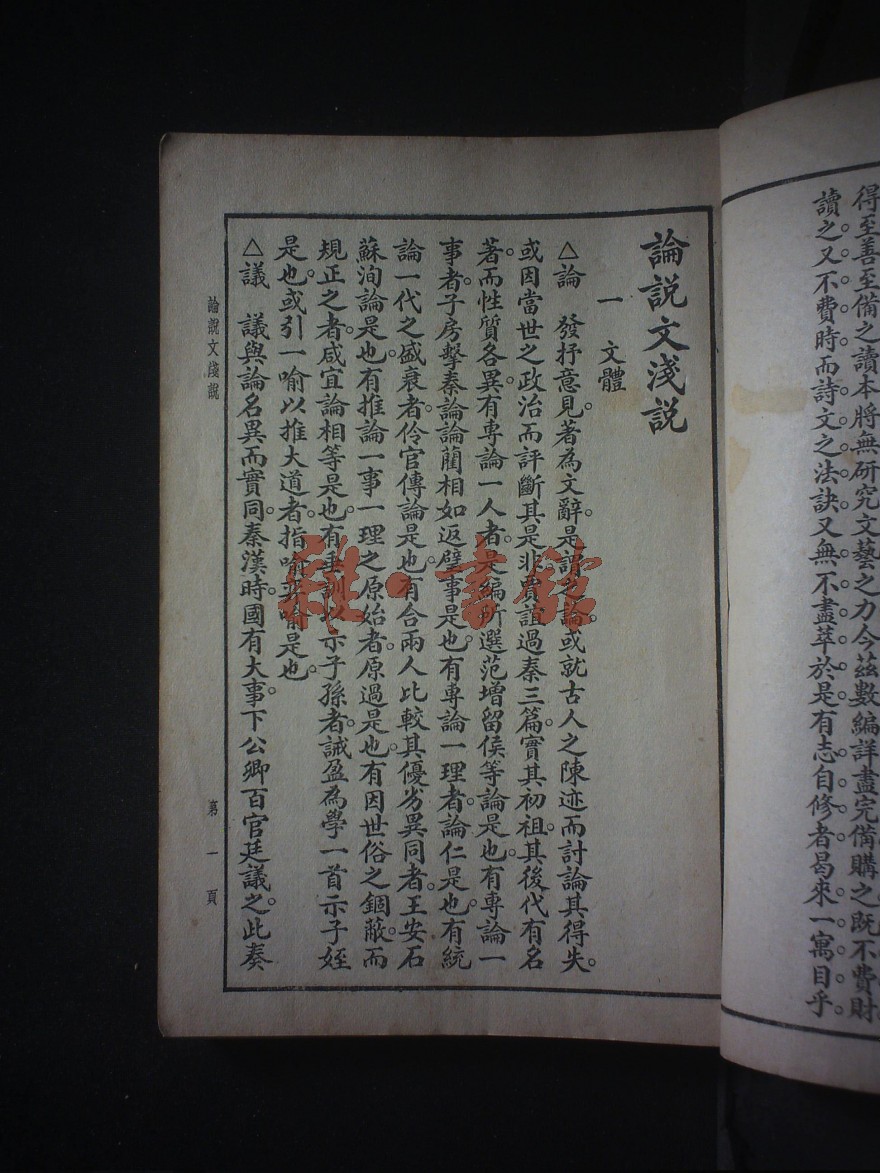 得至善至備之讀本將無研究文藝之力今茲數編詳盡完備購之既不費財
讀之又不費時而詩文之法訣又無不盡萃於是有志自修者曷來一寓目乎
論說文淺說
一 文體
△論 發抒意見。著為文辭。是謂之論。或就古人之陳迹而討論其得失。
或因當世之政治而評斷其是非。賈誼過秦三篇。實其初祖。其後代有名
著。而性質各異。有專論一人者。是編所選范增留侯等論是也。有專論一
事者。子房擊秦論藺相如返璧事是也。有專論一理者。論仁是也。有統
論一代之盛衰者。伶官傳論是也。有合兩人比較其優劣異同者。王安石
蘇洵論是也。有推論一事一理之原始者。原過是也。有因世俗之錮蔽而
規正之者。咸宜論相等是也。有垂訓以示子孫者。誡盈為學一首示子姪
是也。或引一喻以推大道者。指喻 喻是也。
△議 議與論名異而實同。秦漢時。國有大事。下公卿百官廷議之。此奏
論說文淺說
第一頁
雜·書館